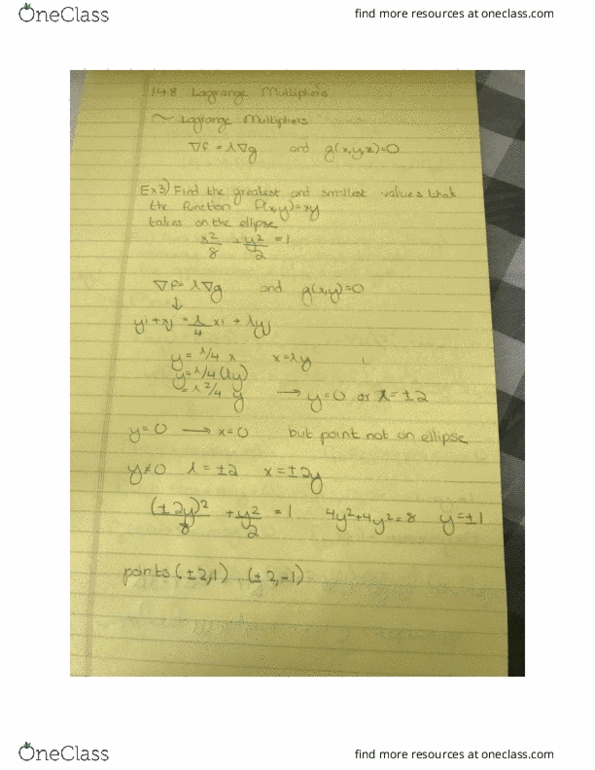 OneClass
find more resources at oneclass.com
14.8 Lagrange Multipliers
~ Lagrange Multipliers
∇f = λ∇g and g(x,y,z)=0
Ex3) Find the greatest and smallest values that
the function f(x,y)=xy
takes on the ellipse
x²/8 + y²/2 = 1
∇f = λ∇g and g(x,y)=0
↓
yi + xj = λ/4 xi + λyj
y = λ/4 x x = λy
y = λ/4 (λy)
= λ²/4 y → y=0 or λ=±2
y=0 → x=0 but point not on ellipse
y≠0 λ=±2 x=±2y
(±2y)²/8 + y²/2 = 1 4y²+4y²=8 y=±1
points (±2,1) (±2,-1)
OneClass
find more resources at oneclass.com